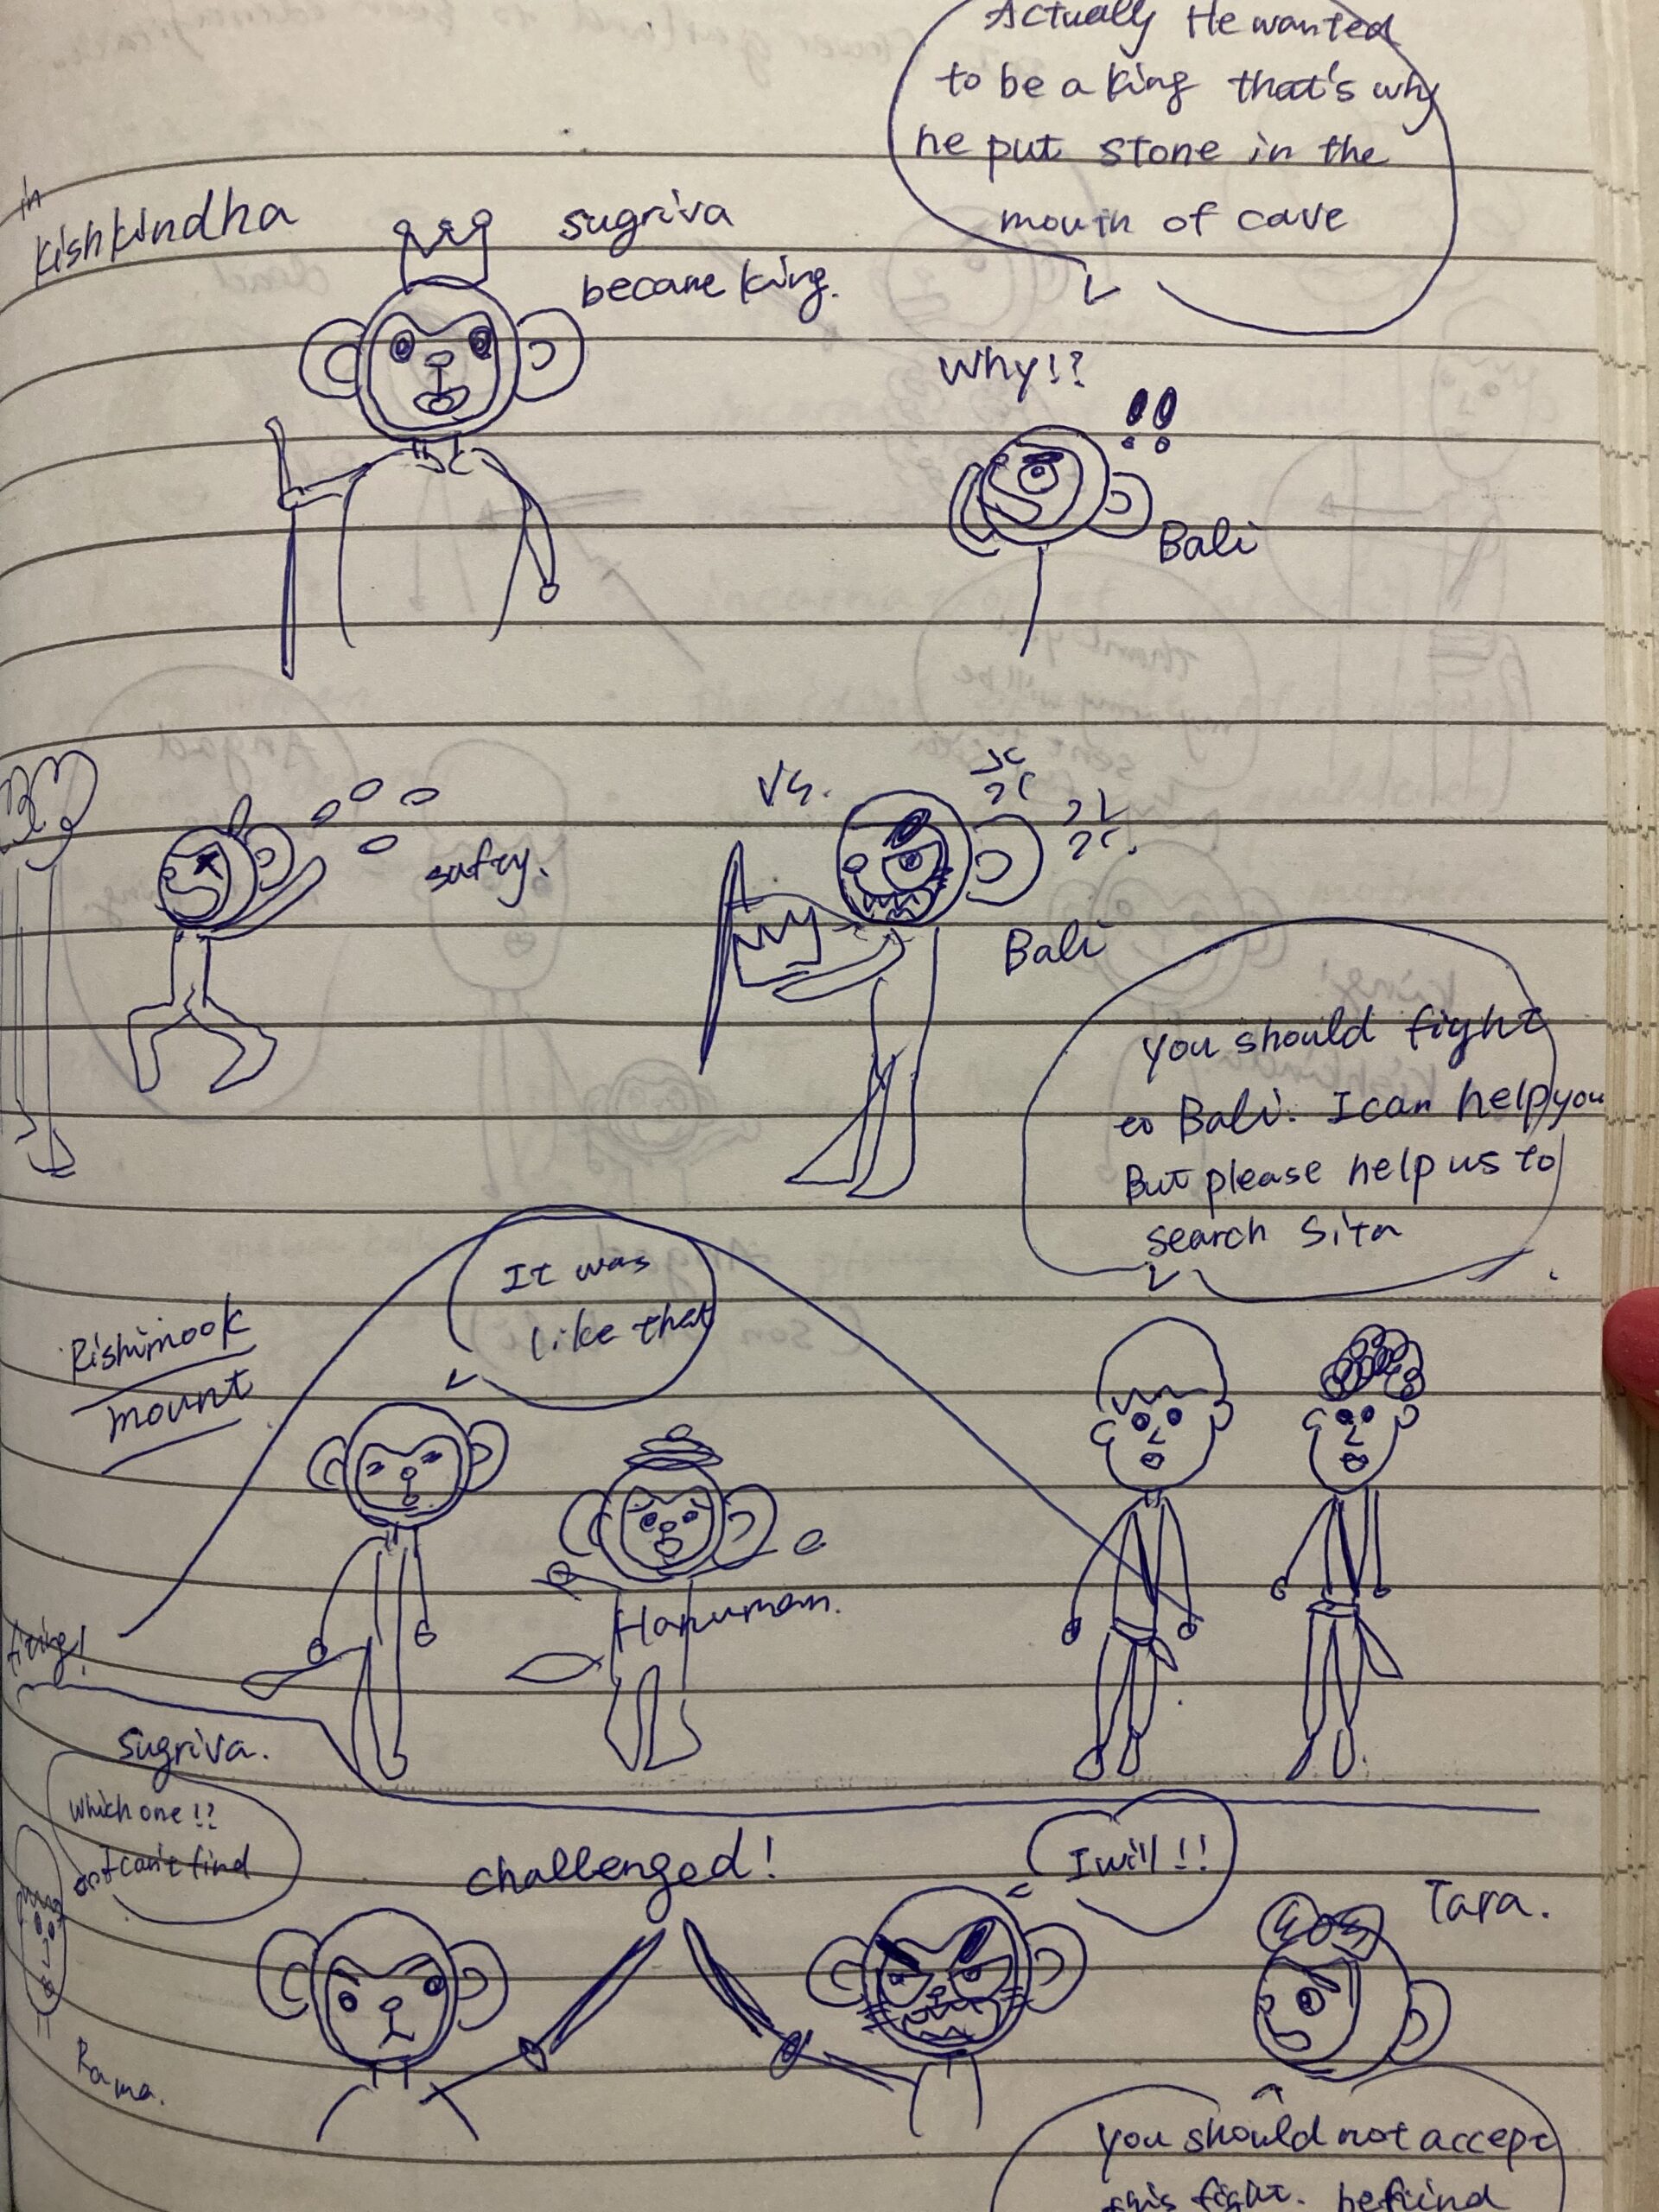 Actually He wanted
to be a king that's why
he put stone in the
mouth of cave
in
Kishkindha
sugriva
became king.
Why!?
Bali
safry.
VS.
Bali
You should fight
to Bali. I can help you
But please help us to
search Sita
It was
like that
Rishimook
mount
Hanuman.
Sugriva.
Which one!?
I can't find
Rama.
challenged!
I will!!
Tara.
You should not accept
this fight. behind